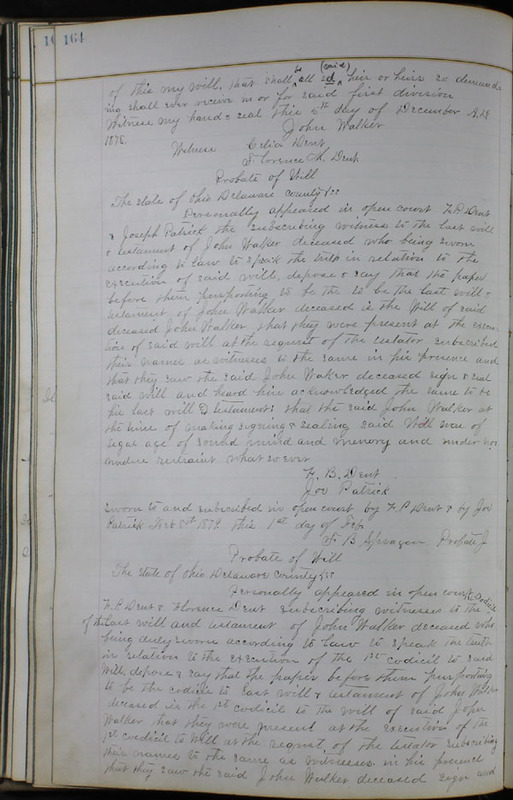 164
(said)
of this my will, that shall be all sd heir or heirs so demand
ing shall ever receive in or for said first division
Witness my hand & seal this 5th day of December A.D.
1876. John Walker
Witness Celia Dent
Florence M. Dent
Probate of Will
The State of Ohio Delaware County ss
Personally appeared in open court H. P. Dent
& Joseph Patrick the subscribing witness to the last will
& testament of John Walker deceased who being sworn
according to law to speak the truth in relation to the
execution of said will, depose & say that the paper
before them purporting to be the to be the last will &
testament of John Walker deceased is the Will of said
deceased John Walker, that they were present at the execu
tion of said will at the request of the testator subscribed
their names as witnesses to the same in his presence and
that they saw the said John Walker deceased sign & seal
said will and heard him acknowledged the same to be
his last will & testament: that the said John Walker at
the time of making signing & sealing said Will was of
legal age of sound mind and memory and under no
undue restraint what so ever
H. B. Dent
Joe Patrick
Sworn to and subscribed in open court by H P Dent & by Joe
Patrick this 1st day of Feb
F. B. Sprague Probate J
Probate of Will
The State of Ohio Delaware County ss
Personally appeared in open court
H. P. Dent & Florence Dent subscribing witnesses to the Codicil
of the last will and testament of John Walker deceased who
being duly sworn according to law to speak the truth
in relation to the execution of the 1st codicil to said
Will, depose & say that the paper before them purporting
to be the codicil to last will & testament of John Walker
deceased is the 1st codicil to the will of said John
Walker that they were present at the execution of the
1st codicil to Will at the request of the testator subscribing
their names to the same as witnesses in his presence
that they saw the said John Walker deceased sign and